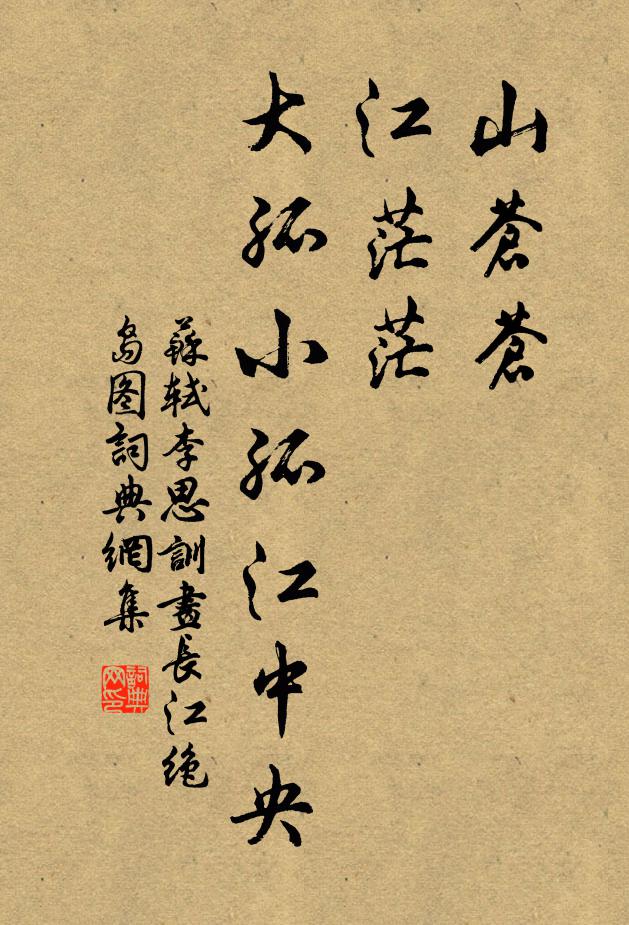 山蒼蒼
江茫茫
大孤小孤江中央
蘇軾李思訓畫長江绝
岛图詞典網集
詞典
网印